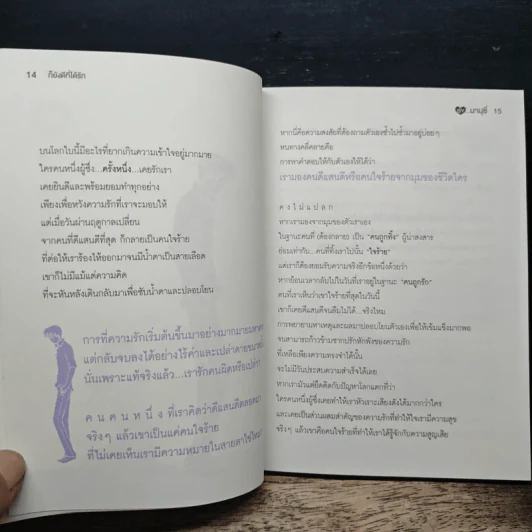 14 ก็ยังดีที่ได้รัก
บนโลกใบนี้มีอะไรที่ยากเกินความเข้าใจอยู่มากมาย
ใครคนหนึ่งผู้ซึ่ง...ครั้งหนึ่ง...เคยรักเรา
เคยยินดีและพร้อมยอมทำทุกอย่าง
เพียงเพื่อหวังความรักที่เราจะมอบให้
แต่เมื่อวันผ่านฤดูกาลเปลี่ยน
จากคนที่ดีแสนดีที่สุด ก็กลายเป็นคนใจร้าย
ที่ต่อให้เราร้องไห้ออกมาจนมีน้ำตาเป็นสายเลือด
เขาก็ไม่มีแม้แต่ความคิด
ที่จะหันหลังเดินกลับมาเพื่อซับน้ำตาและปลอบโยน
การที่ความรักเริ่มต้นขึ้นมาอย่างมากมาย
แต่กลับจบลงได้อย่างไร้ค่าและเปล่าดาย
นั่นเพราะแท้จริงแล้ว...เรารักคนผิดหรือเปล่า
ค น ค น ห นึ่ ง ที่เราคิดว่าดีแสนดี
จริงๆ แล้วเขาเป็นแค่คนใจร้าย
ที่ไม่เคยเห็นเรามีความหมายในสายตาใช่ไหม
...มานุษี่ 15
หากนี่คือความสงสัยที่ต้องถามตัวเองซ้ำไปซ้ำมาอยู่บ่อยๆ
หนทางคลี่คลายคือ
การหาคำตอบให้กับตัวเองให้ได้ว่า
เรามองคนดีแสนดีหรือคนใจร้ายจากมุมของชีวิตใคร
ค ง ไ ม่ แ ป ล ก
หากเรามองจากมุมของตัวเราเอง
ในฐานะคนที่ (ต้องกลาย) เป็น "คนถูกทิ้ง" ผู้น่าสงสาร
ย่อมเท่ากับ...คนที่ทิ้งเราไปนั้น "ใจร้าย"
แต่เราก็ต้องยอมรับความจริงอีกข้อหนึ่งด้วยว่า
หากย้อนเวลากลับไปในวันที่เราอยู่ในฐานะ "คนถูกรัก"
คนที่เราเห็นว่าเขาใจร้ายที่สุดในวันนี้
เขาก็เคยดีแสนดีจนลืมไม่ได้...จริงไหม
การพยายามหาเหตุและผลมาปลอบโยนตัวเองเพื่อให้เข้มแข็งมากพอ
จนสามารถก้าวข้ามซากปรักหักพังของความรัก
ที่เหลือเพียงความทรงจำได้นั้น
จะไม่มีวันประสบความสำเร็จได้เลย
หากเรามัวแต่ยึดติดกับปัญหาโลกแตกที่ว่า
ใครคนหนึ่งผู้ซึ่งเคยทำให้เราหัวเราะเสียงดังได้มากกว่าใคร
และเคยเป็นส่วนผสมสำคัญของความรักที่ทำให้ใจเรามีความสุข
จริงๆ แล้วเขาคือคนใจร้ายที่ทำให้เราได้รู้จักกับความสูญเสีย